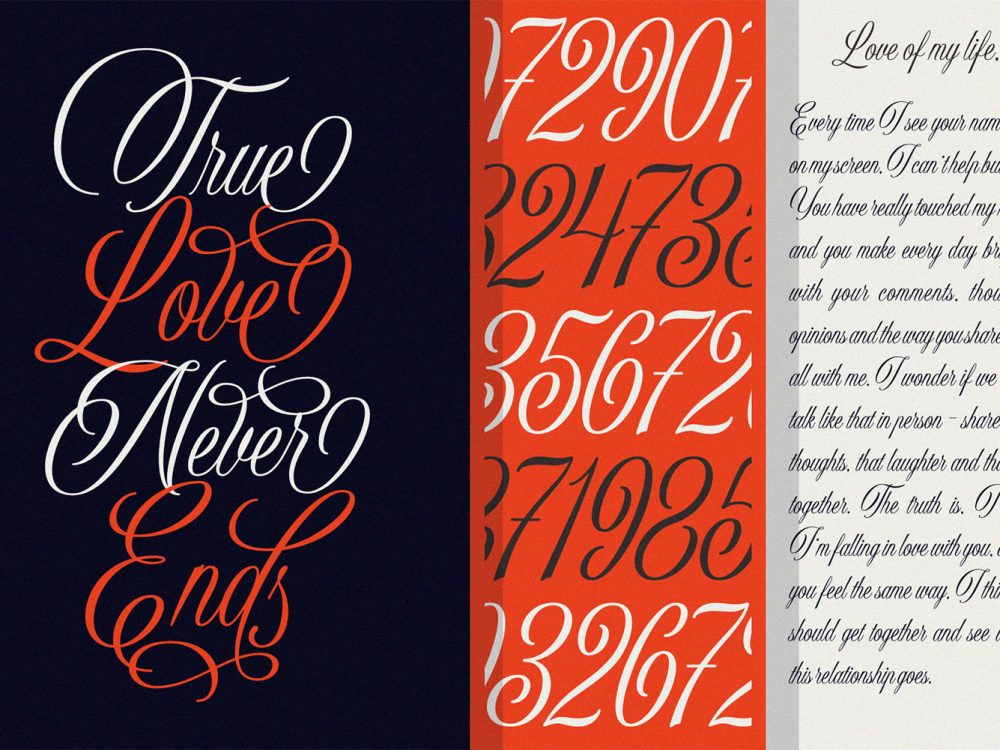 True
Love
Never
Ends
72901
24738
35672
71985
32672
Love of my life,
Every time I see your nam
on my screen, I can't help bu
You have really touched my
and you make every day br
with your comments, thou
opinions and the way you share
all with me. I wonder if we
talk like that in person – share
thoughts, that laughter and th
together. The truth is, I
I'm falling in love with you,
you feel the same way. I thi
should get together and see
this relationship goes.